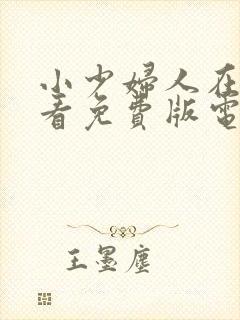 小少婦人在
看免費版電
王墨塵